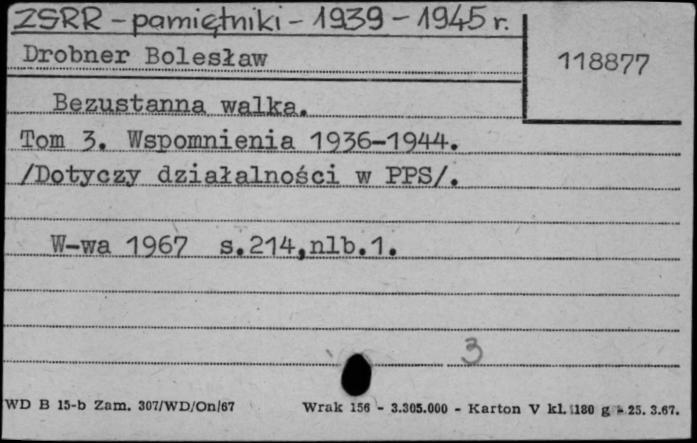 ZSRR - pamiętniki - 1939 - 1945 r.
Drobner Bolesław
118877
Bezustanna walka.
Tom 3. Wspomnienia 1936-1944.
/Dotyczy działalności w PPS/.
W-wa 1967 s.214,nlb.1.
3
WD B 15-b Zam. 307/WD/On/67 Wrak 156 - 3.305.000 - Karton V kl. 180 g - 25. 3.67.